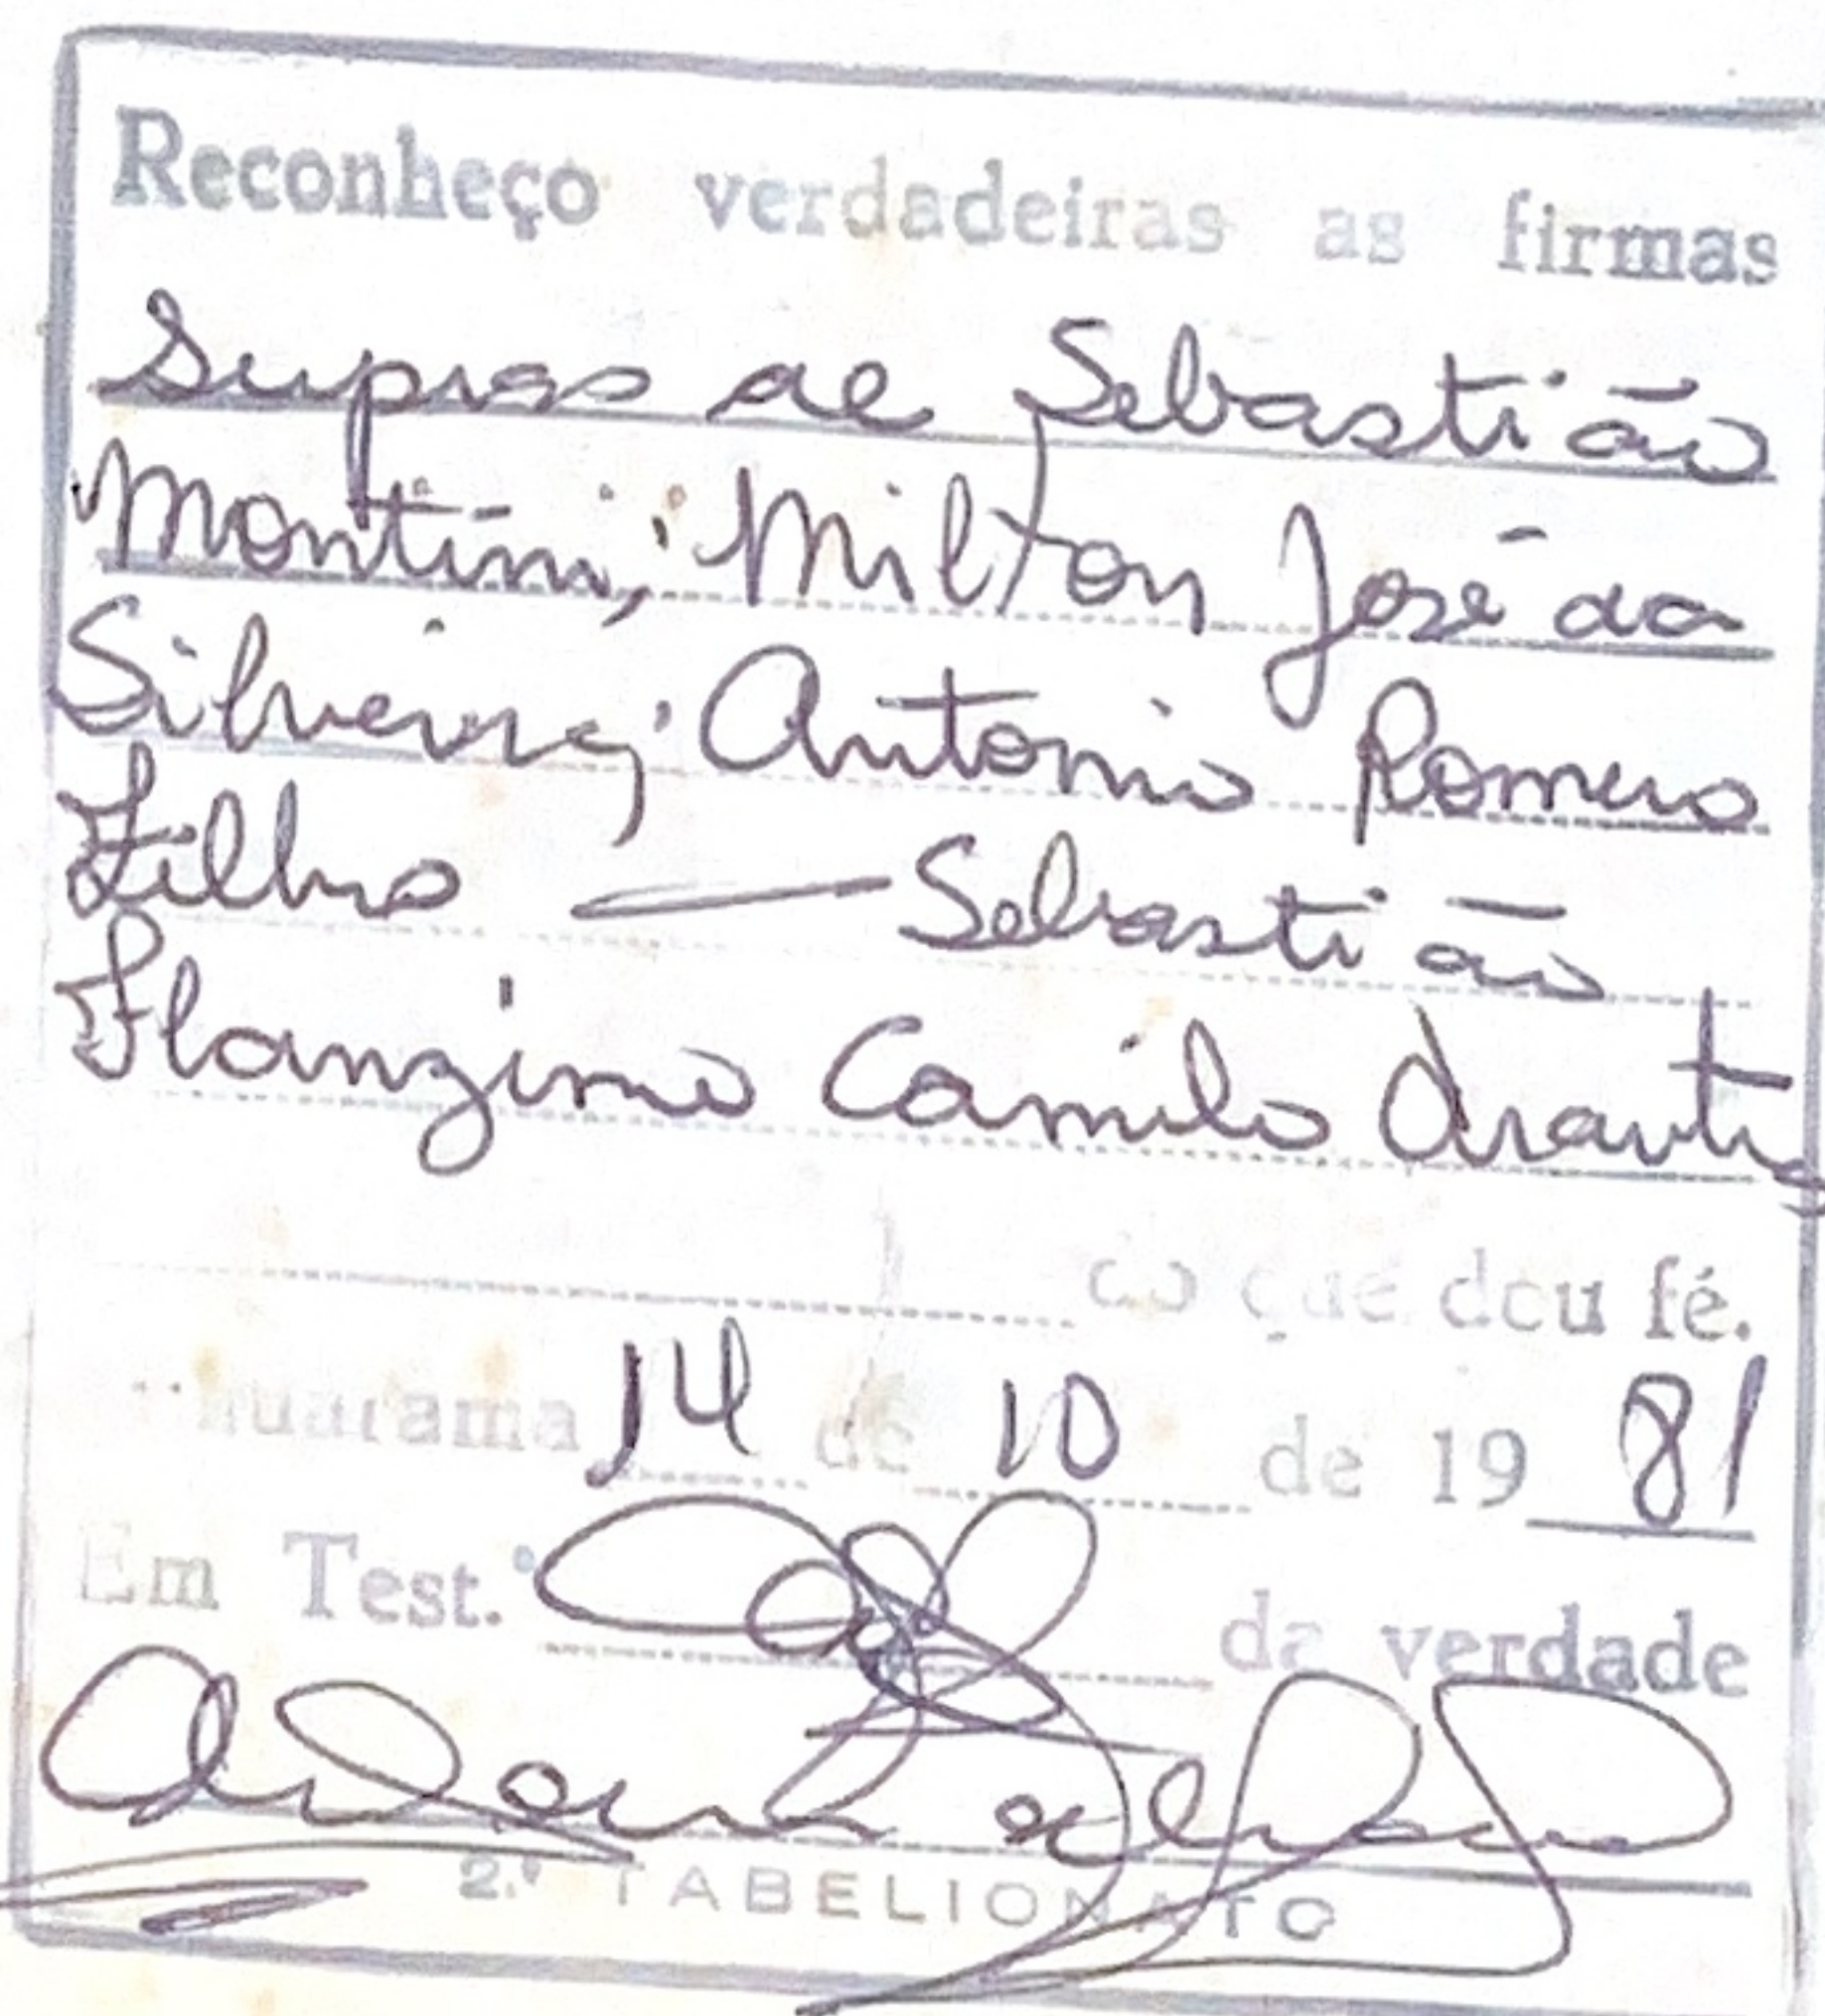 Reconheço verdadeiras as firmas
Supras de Sebastião
Montini, Milton José da
Silveira, Antonio Romero
Filho — Sebastião
Flanzino Camilo Arantes
do que dou fé.
huarama 14 de 10 de 1981
Em Test.º da verdade
2.º TABELIONATO